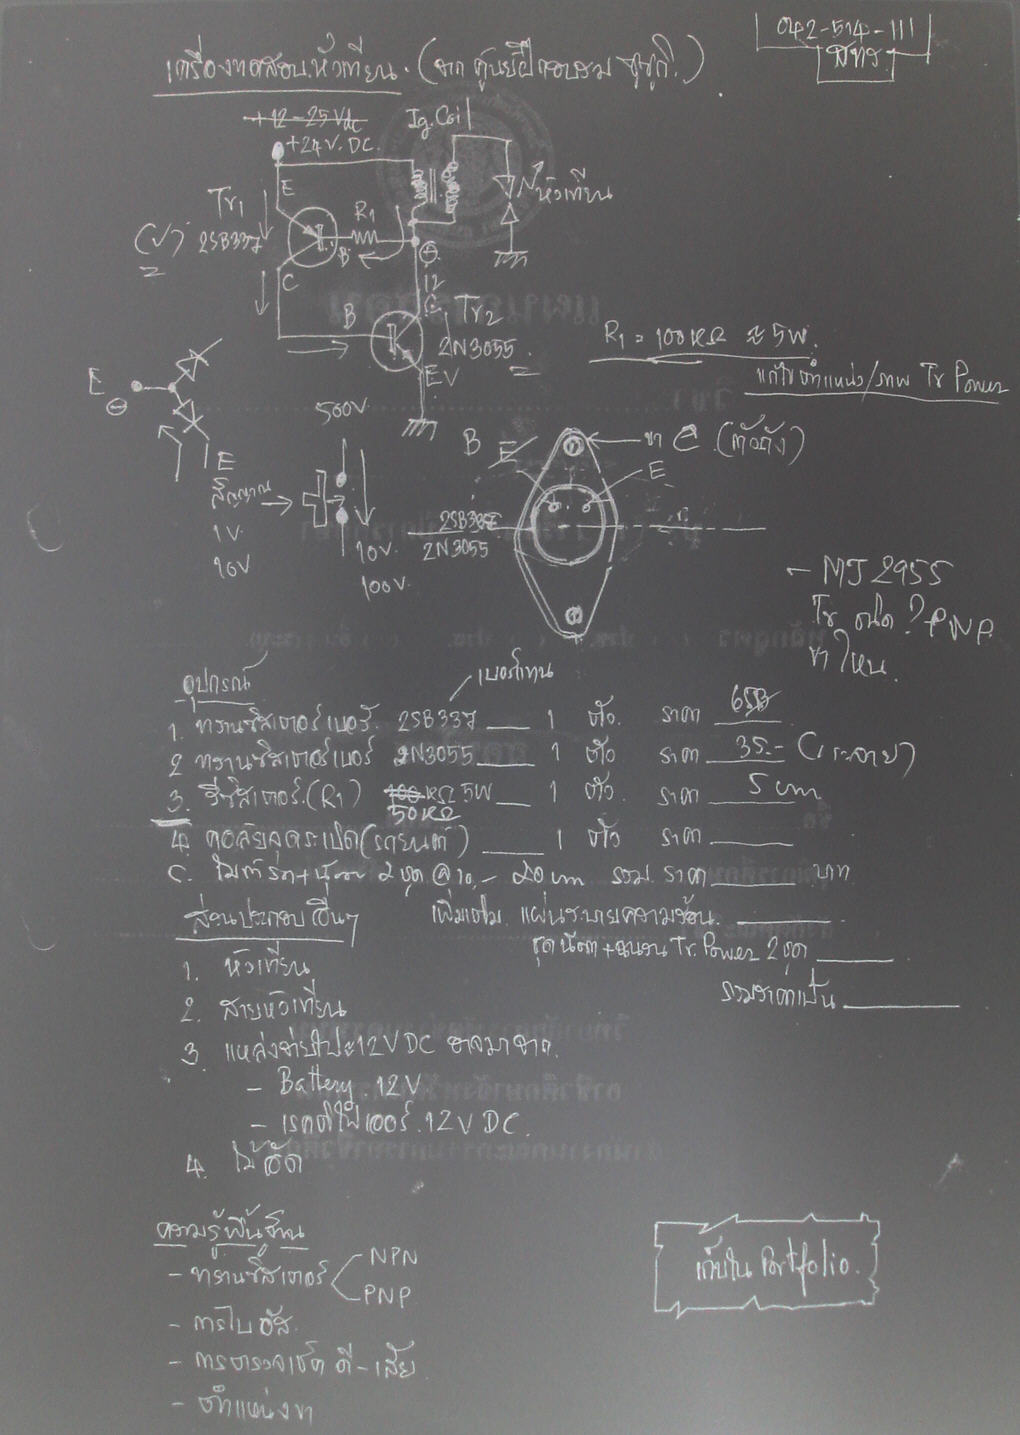 042-514-111
สทร.
เครื่องทดสอบหัวเทียน. (จาก ศูนย์ฝึกอบรม ซูซูกิ.)
+12-25Vdc
+24V. DC.
Ig. Coil
E
Tr1
2SB337
(✓)
R1
B
C
หัวเทียน
⊕
12
C
B
Tr2
2N3055
E
R1 = 100kΩ ≈ 5W.
แก้ไขตำแหน่ง/ภาพ Tr Power
E
⊖
E
สัญญาณ
1V.
10V
500V
10V.
100V.
B E
ขา C (ตัวถัง)
E
2SB337
2N3055
← MJ 2955
Tr ชนิด? PNP
ขาไหน.
อุปกรณ์
เบอร์แทน
1. ทรานซิสเตอร์เบอร์. 2SB337 1 ตัว. ราคา 65฿
2 ทรานซิสเตอร์เบอร์ 2N3055 1 ตัว ราคา 35.-
3. รีซิสเตอร์.(R1) 100 kΩ 5W 1 ตัว. ราคา 5 บาท
50kΩ
4. คอล์ยจุดระเบิด(รถยนต์) 1 ตัว ราคา
2 ชุด @ 10.- 20 บาท รวม ราคา บาท
ส่วนประกอบอื่นๆ
เพิ่มเติม. แผ่นระบายความร้อน.
ชุดน๊อต+ฉนวน Tr. Power 2 ชุด
รวมราคาเป็น
1. หัวเทียน
2. สายหัวเทียน
3. แหล่งจ่ายไฟ 12V DC อาจมาจาก.
- Battery. 12V
- เรคติไฟเออร์. 12V DC.
4. ไม้อัด
ความรู้พื้นฐาน
- ทรานซิสเตอร์
NPN
PNP
- การไบอัส.
- การตรวจเช็ค ดี-เสีย
- ตำแหน่งขา
เก็บใน Portfolio.